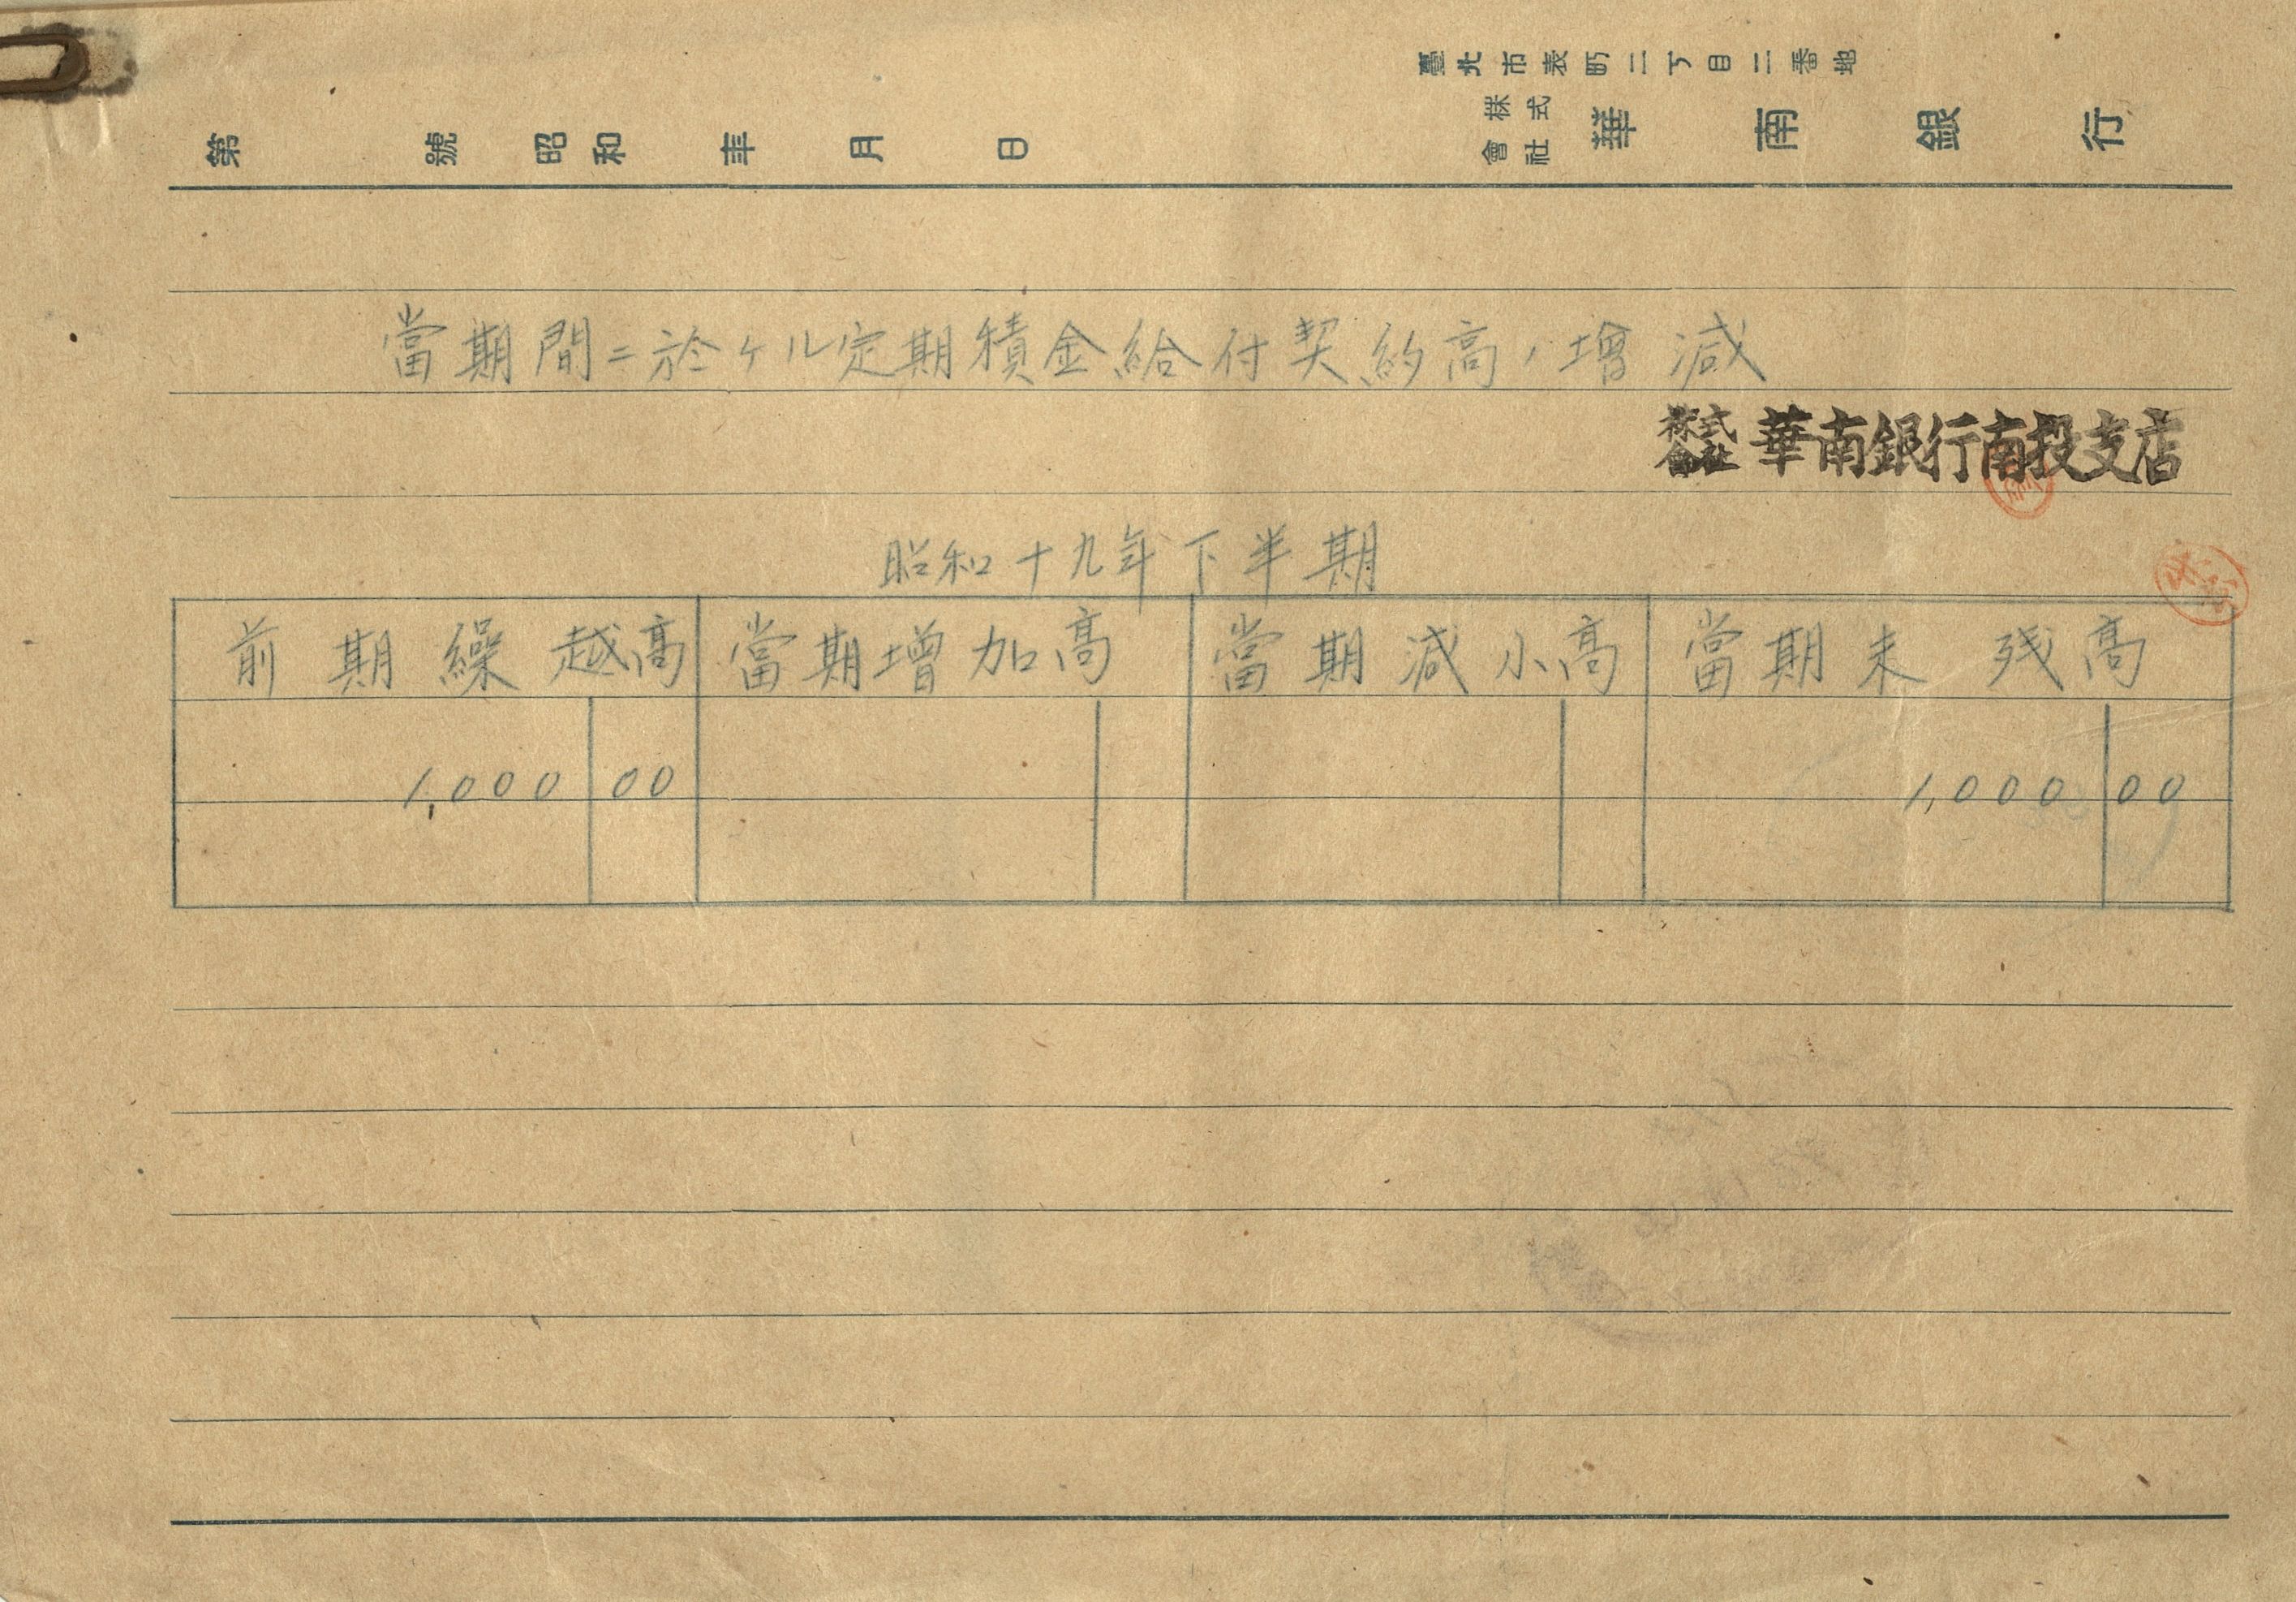 臺北市表町二丁目二番地
第 號 昭和 年 月 日 株式會社 華南銀行
當期間ニ於ケル定期積金給付契約高ノ增減
株式會社 華南銀行南投支店
昭和十九年下半期
前期繰越高 當期增加高 當期減小高 當期末残高
1,000 00 1,000 00